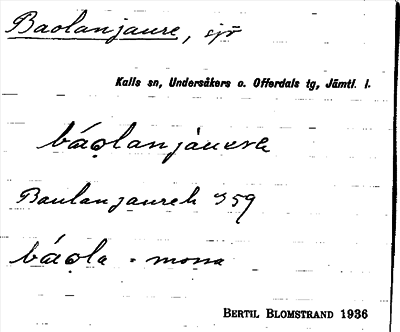 Baolanjaure, sjö
Kalls sn, Undersåkers o. Offerdals tg, Jämtl. l.
báolanjàuʀɛ
Baulanjaureh S 59
báola = mona
BERTIL BLOMSTRAND 1936